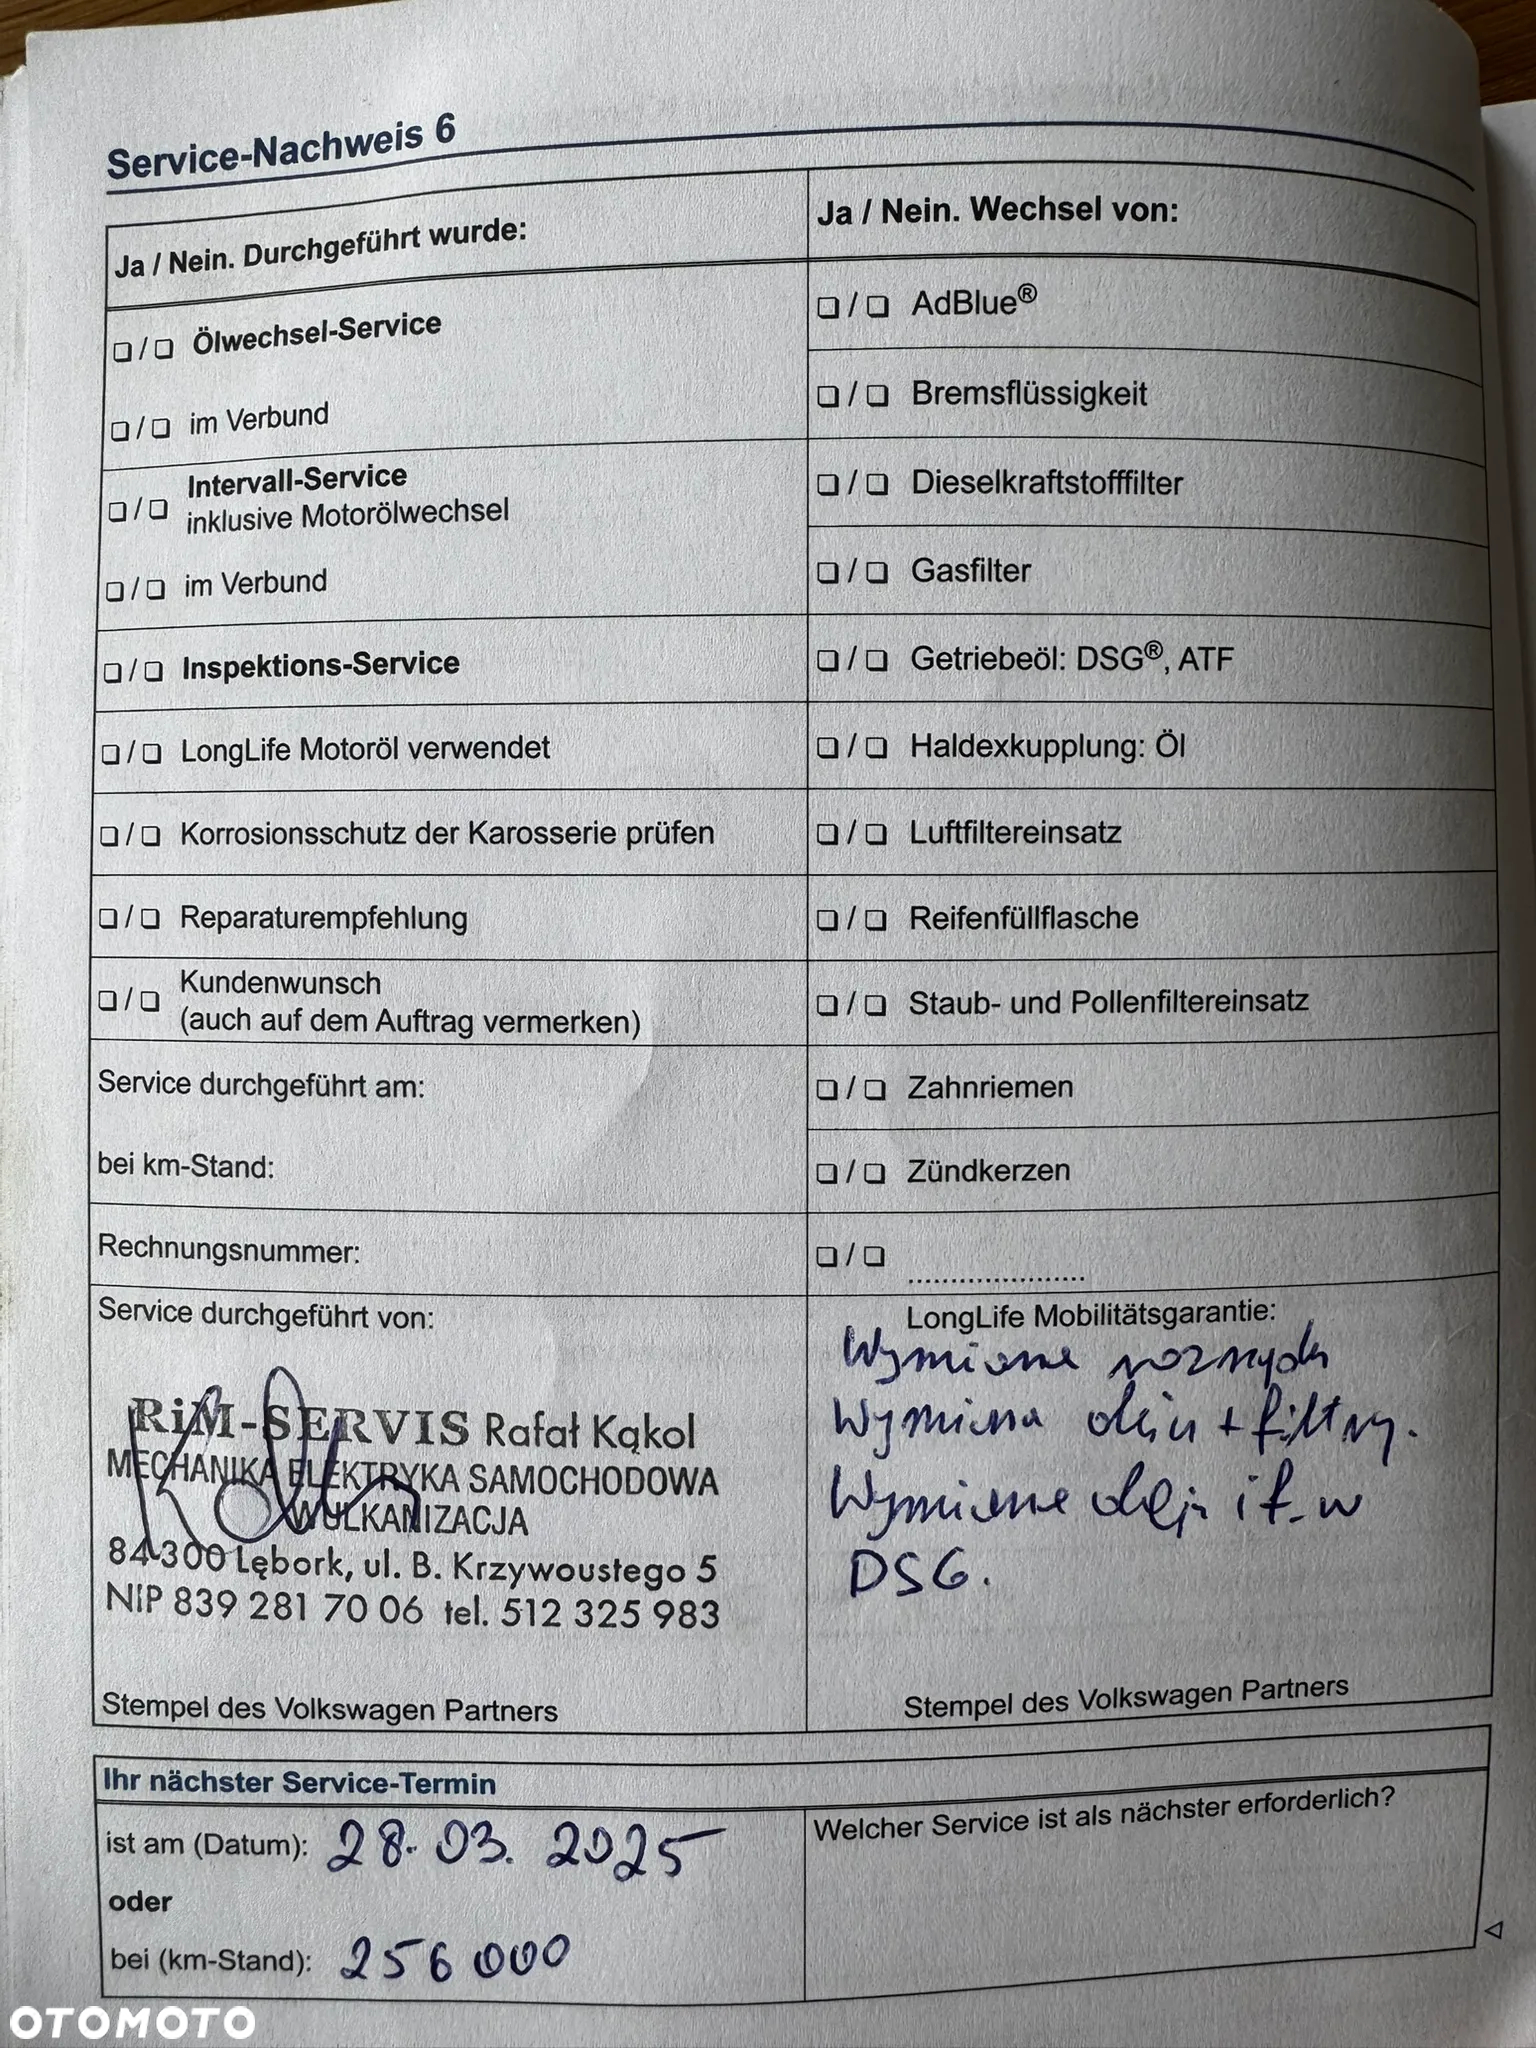 Service-Nachweis 6
Ja / Nein. Durchgeführt wurde:
❏ / ❏ Ölwechsel-Service
❏ / ❏ im Verbund
❏ / ❏ Intervall-Service
inklusive Motorölwechsel
❏ / ❏ im Verbund
❏ / ❏ Inspektions-Service
❏ / ❏ LongLife Motoröl verwendet
❏ / ❏ Korrosionsschutz der Karosserie prüfen
❏ / ❏ Reparaturempfehlung
❏ / ❏ Kundenwunsch
(auch auf dem Auftrag vermerken)
Service durchgeführt am:
bei km-Stand:
Rechnungsnummer:
Service durchgeführt von:
RiM-SERVIS Rafał Kąkol
MECHANIKA ELEKTRYKA SAMOCHODOWA
WULKANIZACJA
84-300 Lębork, ul. B. Krzywoustego 5
NIP 839 281 70 06 tel. 512 325 983
Stempel des Volkswagen Partners
Ja / Nein. Wechsel von:
❏ / ❏ AdBlue®
❏ / ❏ Bremsflüssigkeit
❏ / ❏ Dieselkraftstofffilter
❏ / ❏ Gasfilter
❏ / ❏ Getriebeöl: DSG®, ATF
❏ / ❏ Haldexkupplung: Öl
❏ / ❏ Luftfiltereinsatz
❏ / ❏ Reifenfüllflasche
❏ / ❏ Staub- und Pollenfiltereinsatz
❏ / ❏ Zahnriemen
❏ / ❏ Zündkerzen
❏ / ❏ .....................
LongLife Mobilitätsgarantie:
Wymiana rozrządu
Wymiana oleju + filtry.
Wymiana oleju i f. w
DSG.
Stempel des Volkswagen Partners
Ihr nächster Service-Termin
ist am (Datum): 28.03.2025
oder
bei (km-Stand): 256 000
Welcher Service ist als nächster erforderlich?
OTOMOTO